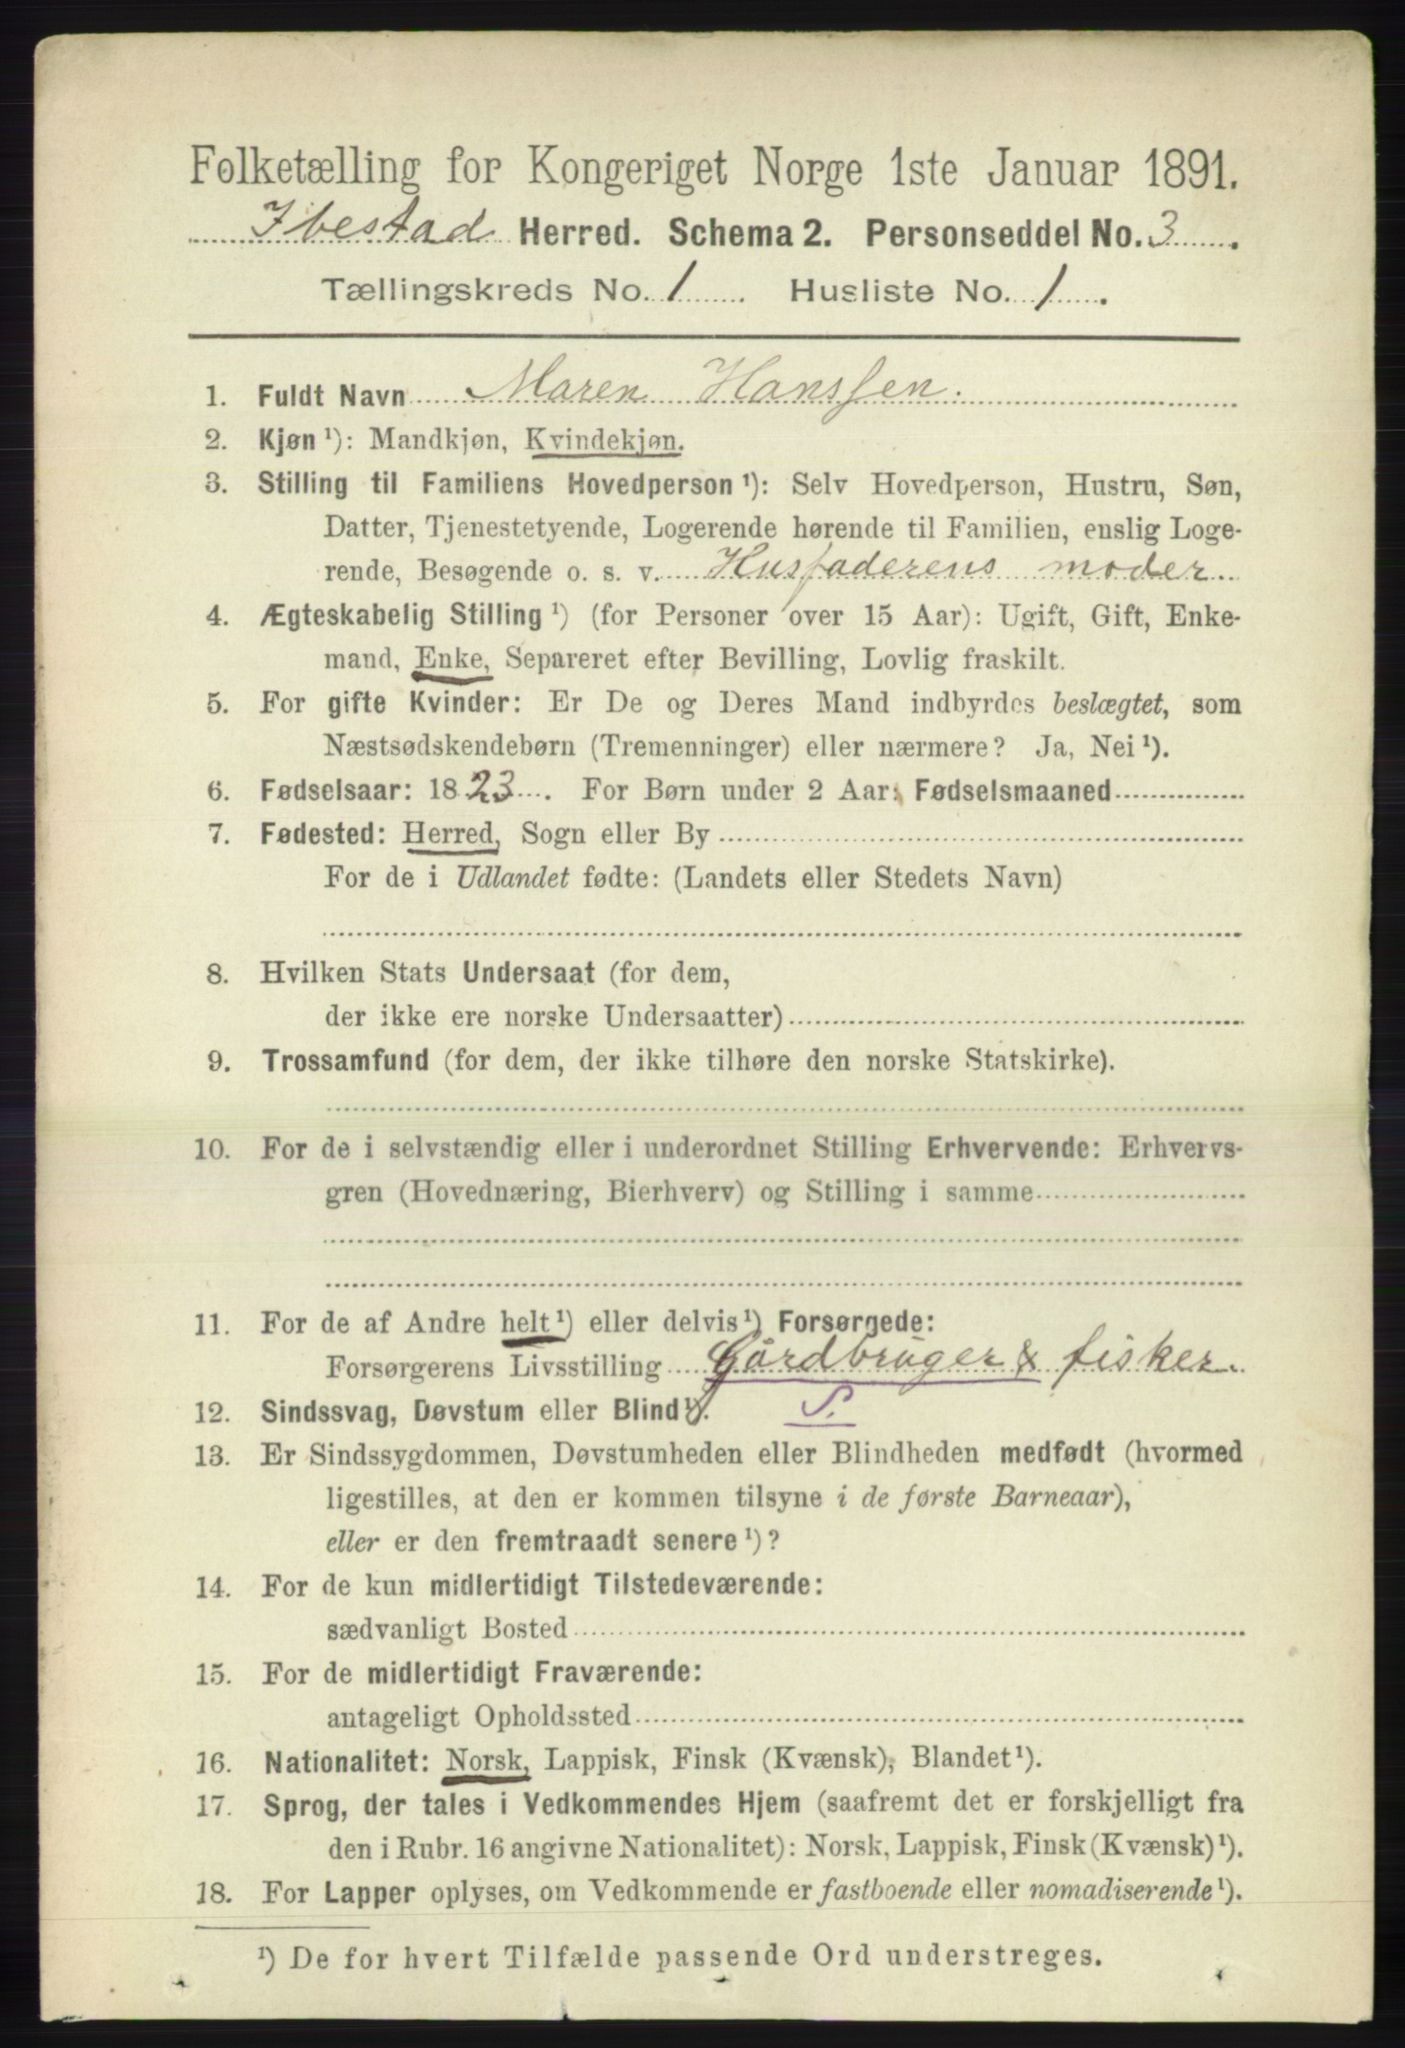 Folketælling for Kongeriget Norge 1ste Januar 1891.
Ibestad Herred. Schema 2. Personseddel No. 3.
Tællingskreds No. 1 Husliste No. 1.
1. Fuldt Navn Maren Hanssen.
2. Kjøn ¹): Mandkjøn, Kvindekjøn.
3. Stilling til Familiens Hovedperson ¹): Selv Hovedperson, Hustru, Søn,
Datter, Tjenestetyende, Logerende hørende til Familien, enslig Loge-
rende, Besøgende o. s. v. Husfaderens moder
4. Ægteskabelig Stilling ¹) (for Personer over 15 Aar): Ugift, Gift, Enke-
mand, Enke, Separeret efter Bevilling, Lovlig fraskilt.
5. For gifte Kvinder: Er De og Deres Mand indbyrdes beslægtet, som
Næstsødskendebørn (Tremenninger) eller nærmere? Ja, Nei ¹).
6. Fødselsaar: 1823. For Børn under 2 Aar: Fødselsmaaned
7. Fødested: Herred, Sogn eller By
For de i Udlandet fødte: (Landets eller Stedets Navn)
8. Hvilken Stats Undersaat (for dem,
der ikke ere norske Undersaatter)
9. Trossamfund (for dem, der ikke tilhøre den norske Statskirke).
10. For de i selvstændig eller i underordnet Stilling Erhvervende: Erhvervs-
gren (Hovednæring, Bierhverv) og Stilling i samme
11. For de af Andre helt ¹) eller delvis ¹) Forsørgede:
Forsørgerens Livsstilling Gårdbruger & fisker.
12. Sindssvag, Døvstum eller Blind ¹). S.
13. Er Sindssygdommen, Døvstumheden eller Blindheden medfødt (hvormed
ligestilles, at den er kommen tilsyne i de første Barneaar),
eller er den fremtraadt senere ¹)?
14. For de kun midlertidigt Tilstedeværende:
sædvanligt Bosted
15. For de midlertidigt Fraværende:
antageligt Opholdssted
16. Nationalitet: Norsk, Lappisk, Finsk (Kvænsk), Blandet ¹).
17. Sprog, der tales i Vedkommendes Hjem (saafremt det er forskjelligt fra
den i Rubr. 16 angivne Nationalitet): Norsk, Lappisk, Finsk (Kvænsk) ¹).
18. For Lapper oplyses, om Vedkommende er fastboende eller nomadiserende ¹).
¹) De for hvert Tilfælde passende Ord understreges.